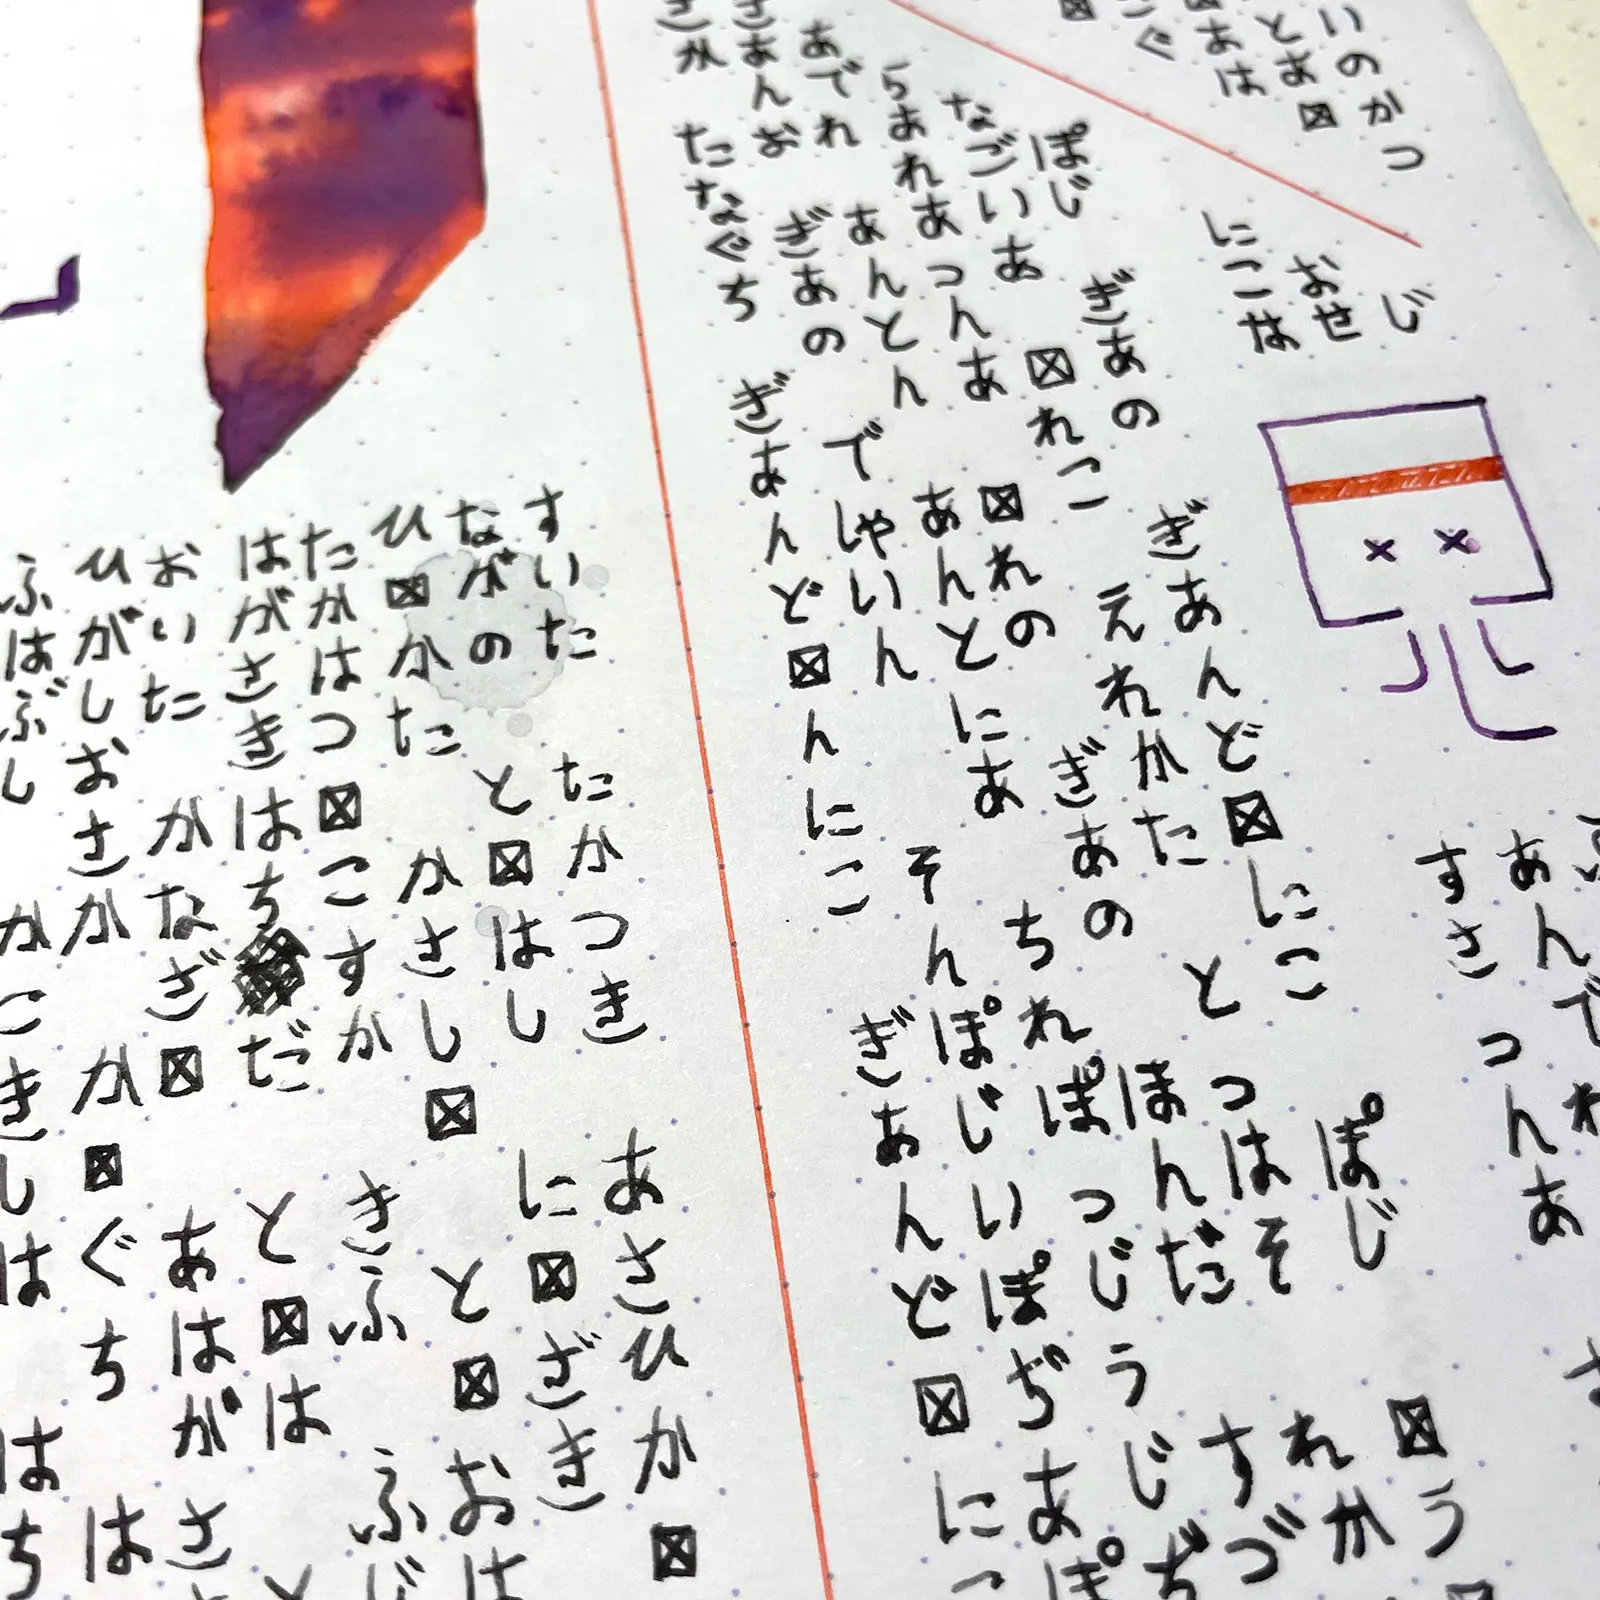 いのかつ
とお☒
☒おは
じ
おせ
にこは
あんでれ
すさ つんあ
ぽじ ぎあの ぎあんど☒にこ ぽじ ☒う
なごいあ ☒れこ えれかた とつはそ れか
らあれあつんあ ☒れの ぎあの ほんだ すづ
あでれ あんとん あんとにあ ちれぽつじうじぢ
あんお ぎあの でしゃいん そんぽじいぽぢあぽ
たなぐち ぎあんど☒んにこ ぎあんど☒にこ
すいた たかつき あさひか☒
ながの と☒はし に☒ざき
ひ☒かた かさし☒ と☒おは
たかはつ ☒こすか きふ ふじ
はがさき はちだ と☒は と
おいた かなざ☒ あはがさ
ひがしおさか か☒ぐち は
ふはぶし かこきしは はち